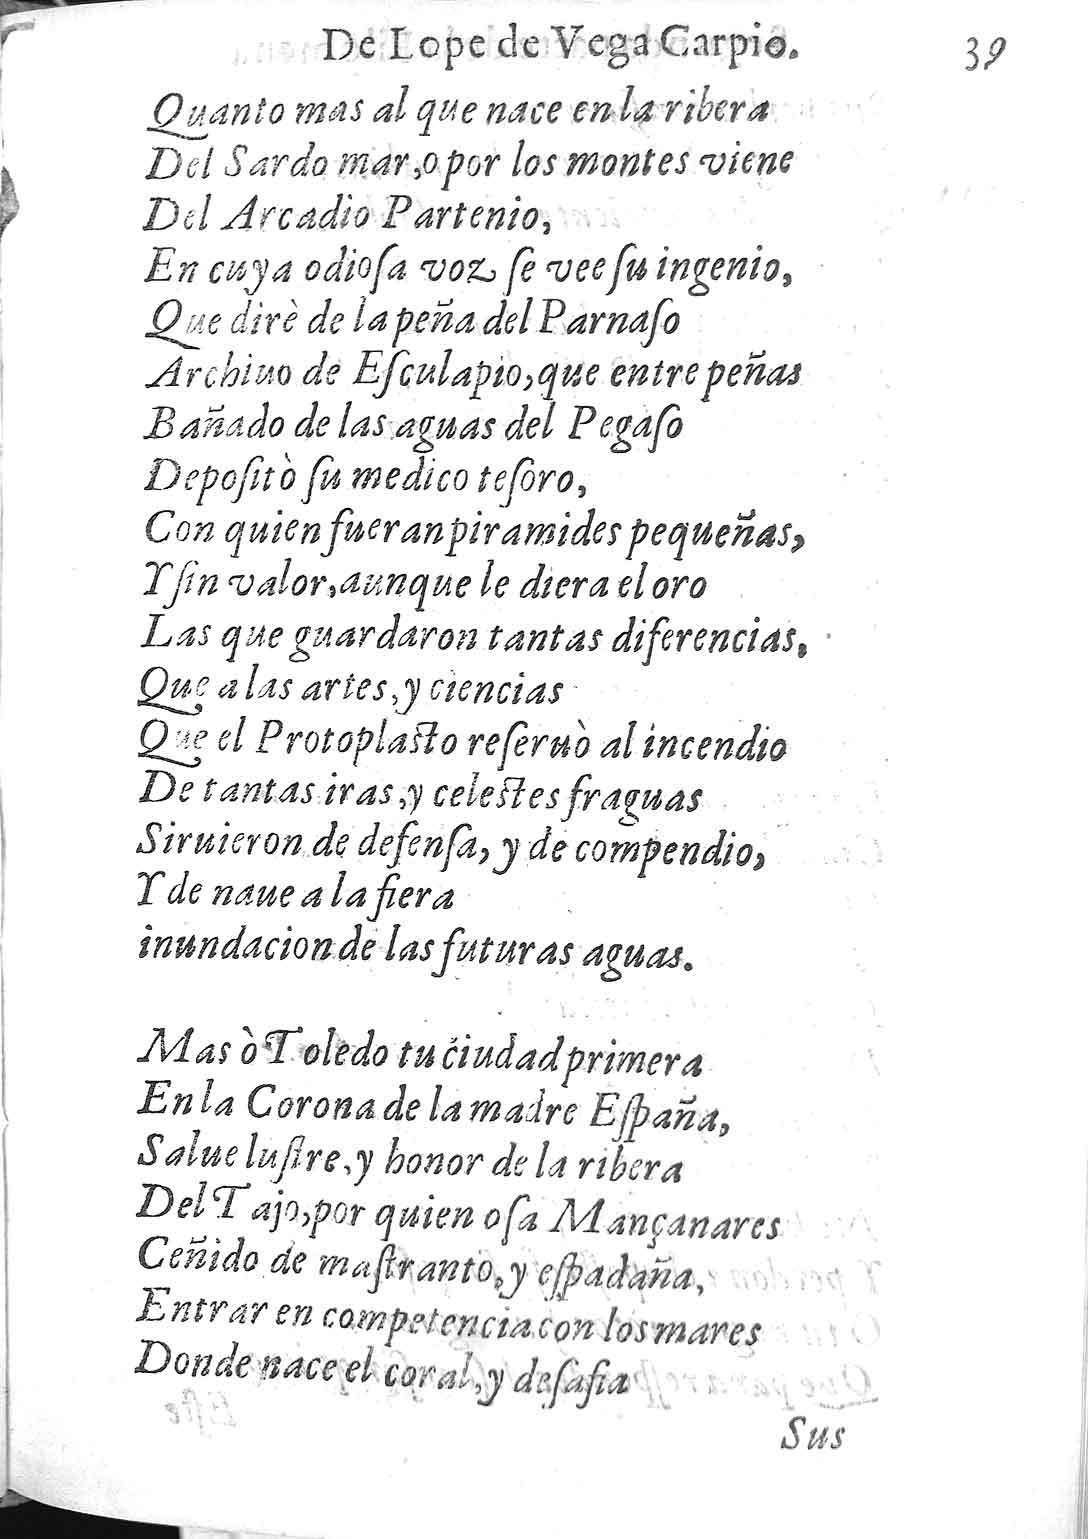 De Lope de Vega Carpio. 39
Quanto mas al que nace en la ribera
Del Sardo mar, o por los montes viene
Del Arcadio Partenio,
En cuya odioſa voz ſe vee ſu ingenio,
Que dirè de la peña del Parnaſo
Archiuo de Eſculapio, que entre peñas
Bañado de las aguas del Pegaſo
Depoſitò ſu medico teſoro,
Con quien fueran piramides pequeñas,
Y ſin valor, aunque le diera el oro
Las que guardaron tantas diferencias,
Que a las artes, y ciencias
Que el Protoplaſto reſeruò al incendio
De tantas iras, y celeſtes fraguas
Siruieron de defenſa, y de compendio,
Y de naue a la fiera
inundacion de las futuras aguas.
Mas ò Toledo tu ciudad primera
En la Corona de la madre Eſpaña,
Salue luſtre, y honor de la ribera
Del Tajo, por quien oſa Mançanares
Ceñido de maſtranto, y eſpadaña,
Entrar en competencia con los mares
Donde nace el coral, y deſafia
Sus